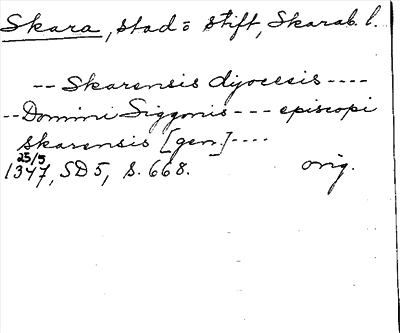 Skara, stad o stift, Skarab. l.
-- Skarensis dyocesis ----
-- Domini Siggonis --- episcopi
skarensis [gen.] ----
25/5
1347, SD 5, s. 668. orig.